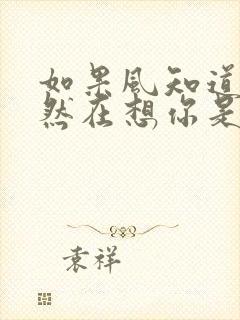 如果风知道
然在想你是
袁祥